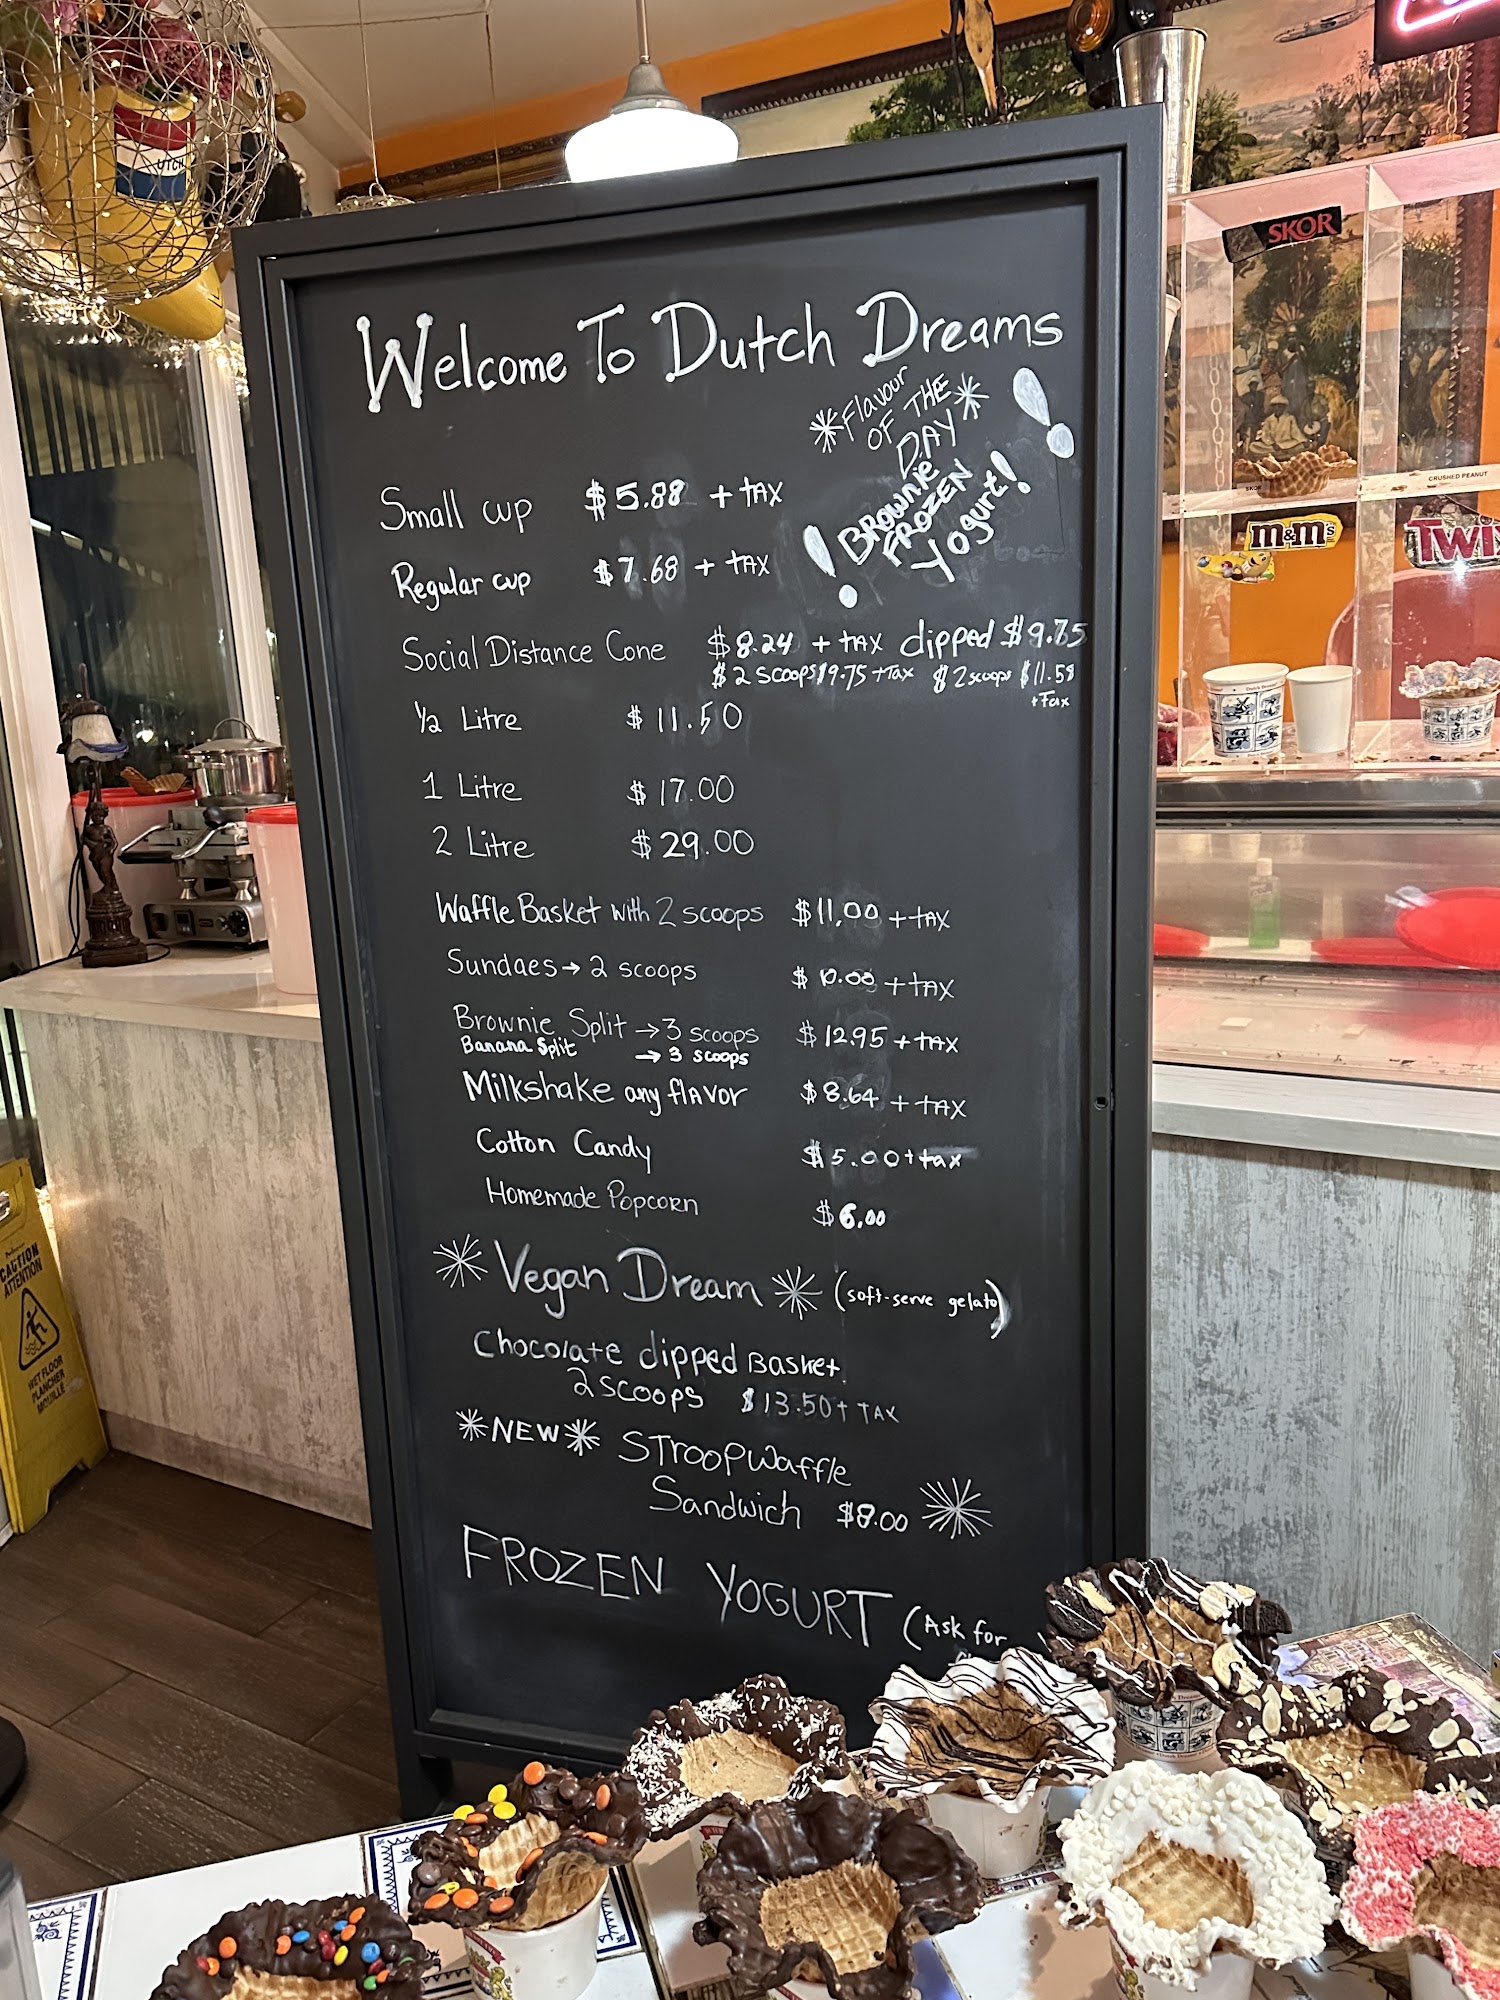 Welcome To Dutch Dreams
*Flavour
OF THE
DAY*
! BROWNIE
FROZEN
Yogurt! !
Small cup $5.88 + tAX
Regular cup $7.68 + tAX
Social Distance Cone $8.24 + tAX dipped $9.75
$ 2 scoops $9.75 + Tax $ 2 scoops $11.58
+ Tax
1/2 Litre $ 11.50
1 Litre $ 17.00
2 Litre $ 29.00
Waffle Basket with 2 scoops $11.00 + tAX
Sundaes → 2 scoops $ 10.00 + tAX
Brownie Split → 3 scoops $ 12.95 + tAX
Banana Split → 3 scoops
Milkshake any flavor $8.64 + tAX
Cotton Candy $5.00 + tax
Homemade Popcorn $6.00
* Vegan Dream * (soft-serve gelato)
Chocolate dipped Basket
2 scoops $13.50 + TAX
*NEW* STROOPWaffle
Sandwich $8.00 *
FROZEN YOGURT (Ask for
SKOR
SKOR
CRUSHED PEANUT
m&m's
CAUTION
ATTENTION
WET FLOOR
PLANCHER
MOUILLÉ